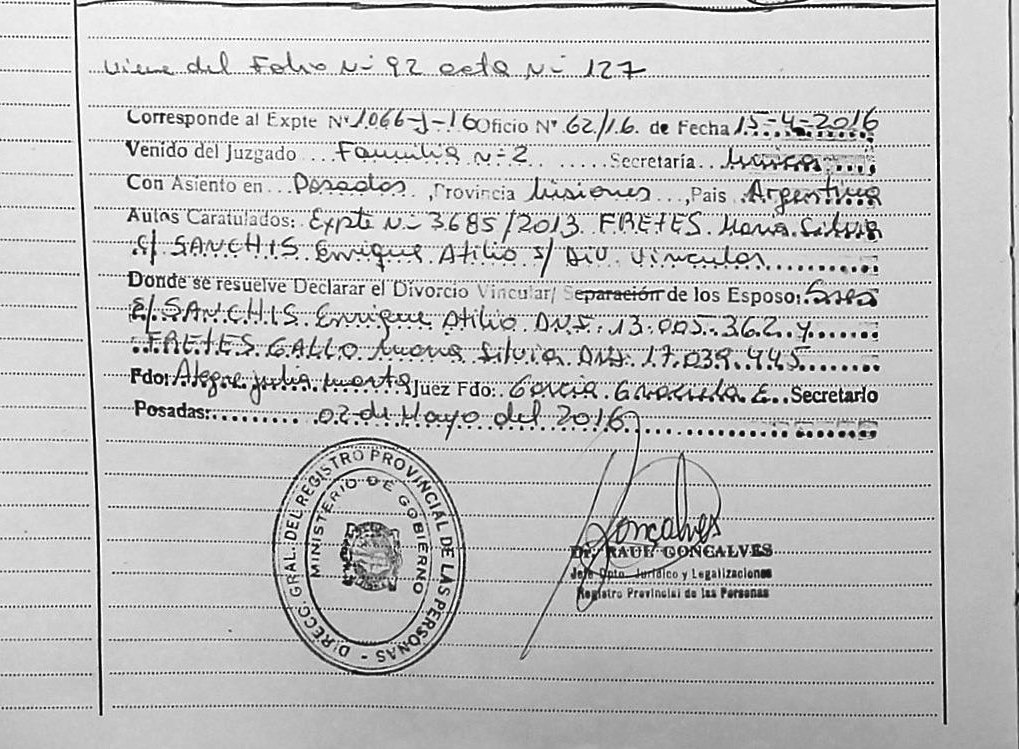 Viene del Folio Nº 92 acta Nº 127
Corresponde al Expte Nº 1066-J-16 Oficio Nº 62/16. de Fecha 15-4-2016
Venido del Juzgado ... Familia Nº 2 ...... Secretaría .. Unica
Con Asiento en .. Posadas , Provincia Misiones ..., Pais . Argentina
Autos Caratulados: Expte Nº 3685/2013 FRETES Maria Silvia
c/ SANCHIS Enrique Atilio s/ Div. Vincular
Donde se resuelve Declarar el Divorcio Vincular/ Separación de los Esposo:
SANCHIS Enrique Atilio DNI. 13.005.362 y
FRETES GALLO Maria Silvia DNI. 17.039.445
Fdo: Alegre Julia Marta Juez Fdo: Garcia Graciela E. Secretario
Posadas: 02 de Mayo del 2016
DIRECC. GRAL. DEL REGISTRO PROVINCIAL DE LAS PERSONAS -
MINISTERIO DE GOBIERNO
Goncalves
Dr. RAUL GONCALVES
Jefe Dpto. Jurídico y Legalizaciones
Registro Provincial de las Personas